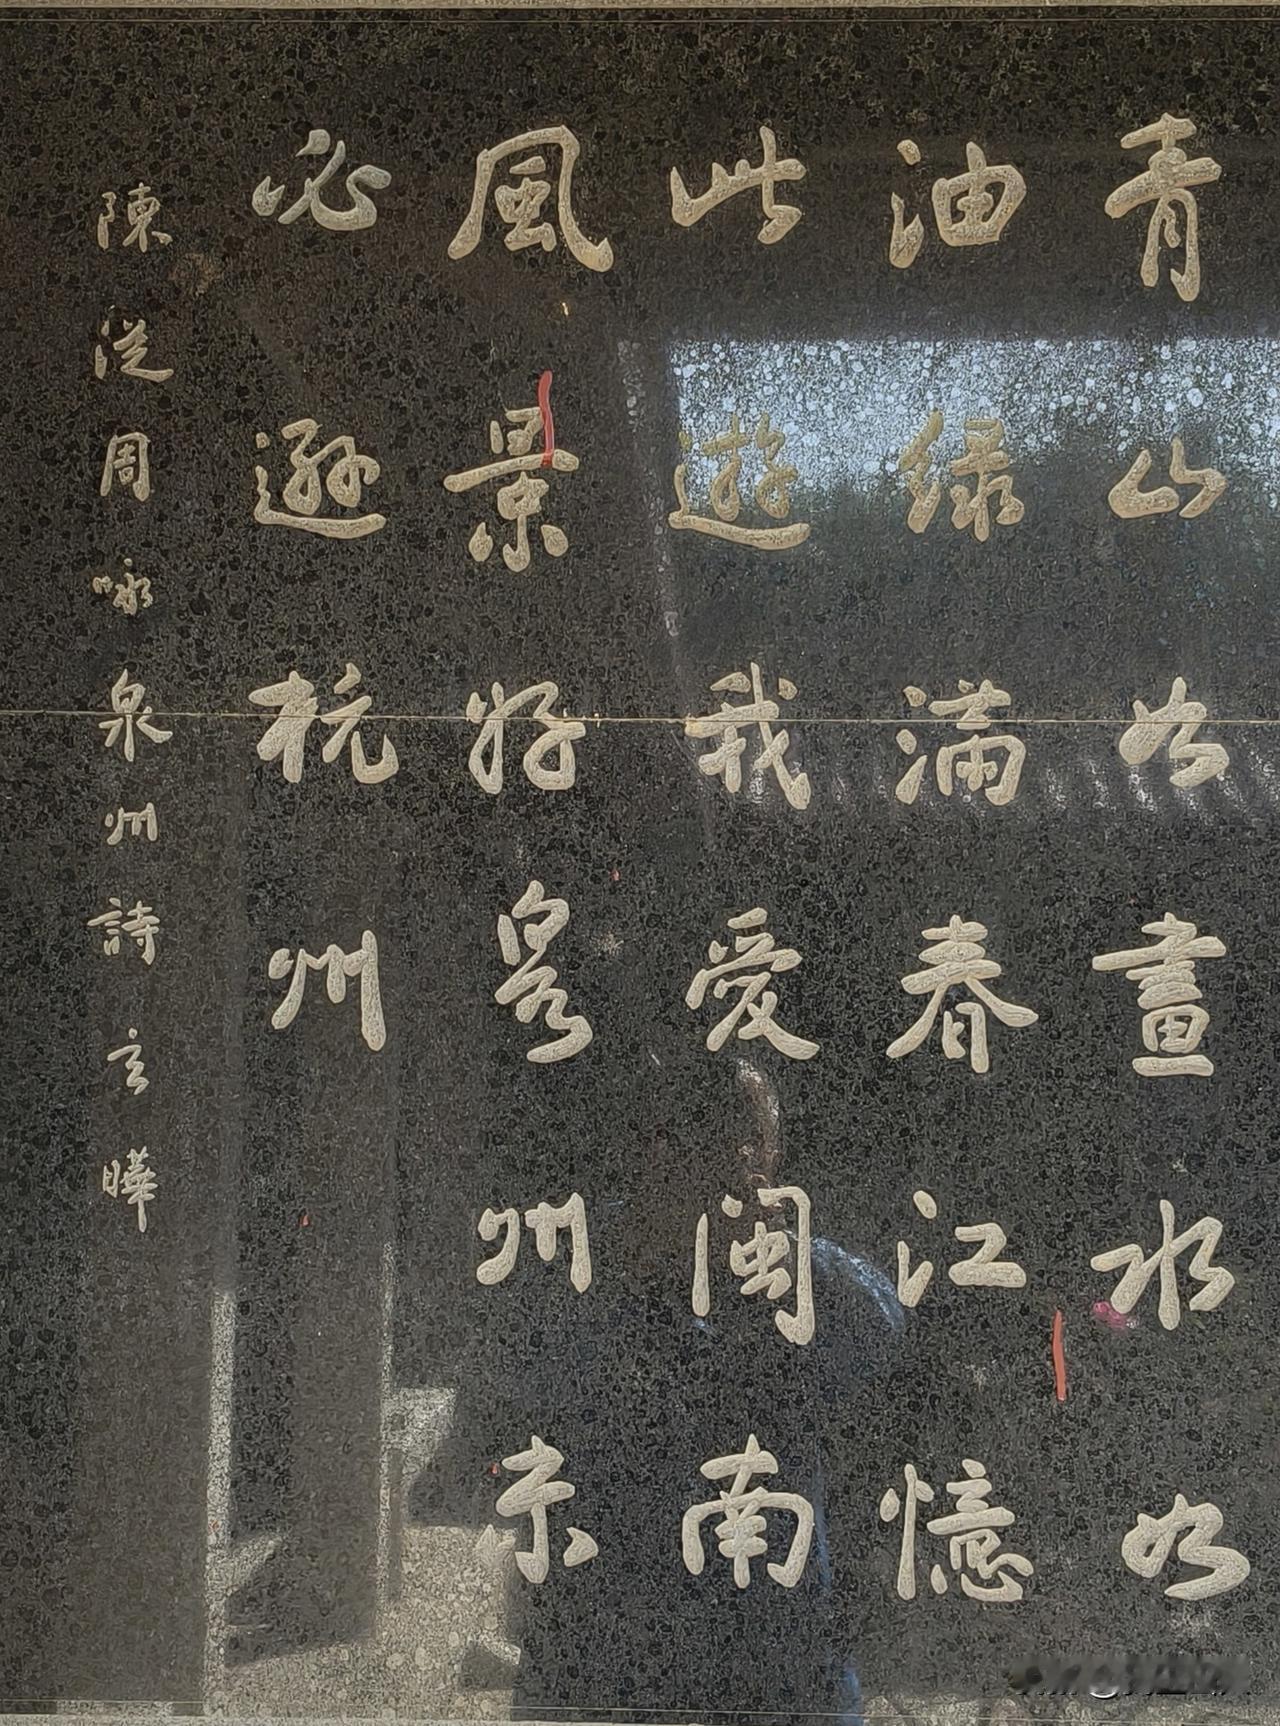 青山如畫水如
油绿滿春江憶
此遊我愛閩南
風景好泉州未
必遜杭州
陳從周咏泉州詩玄曄